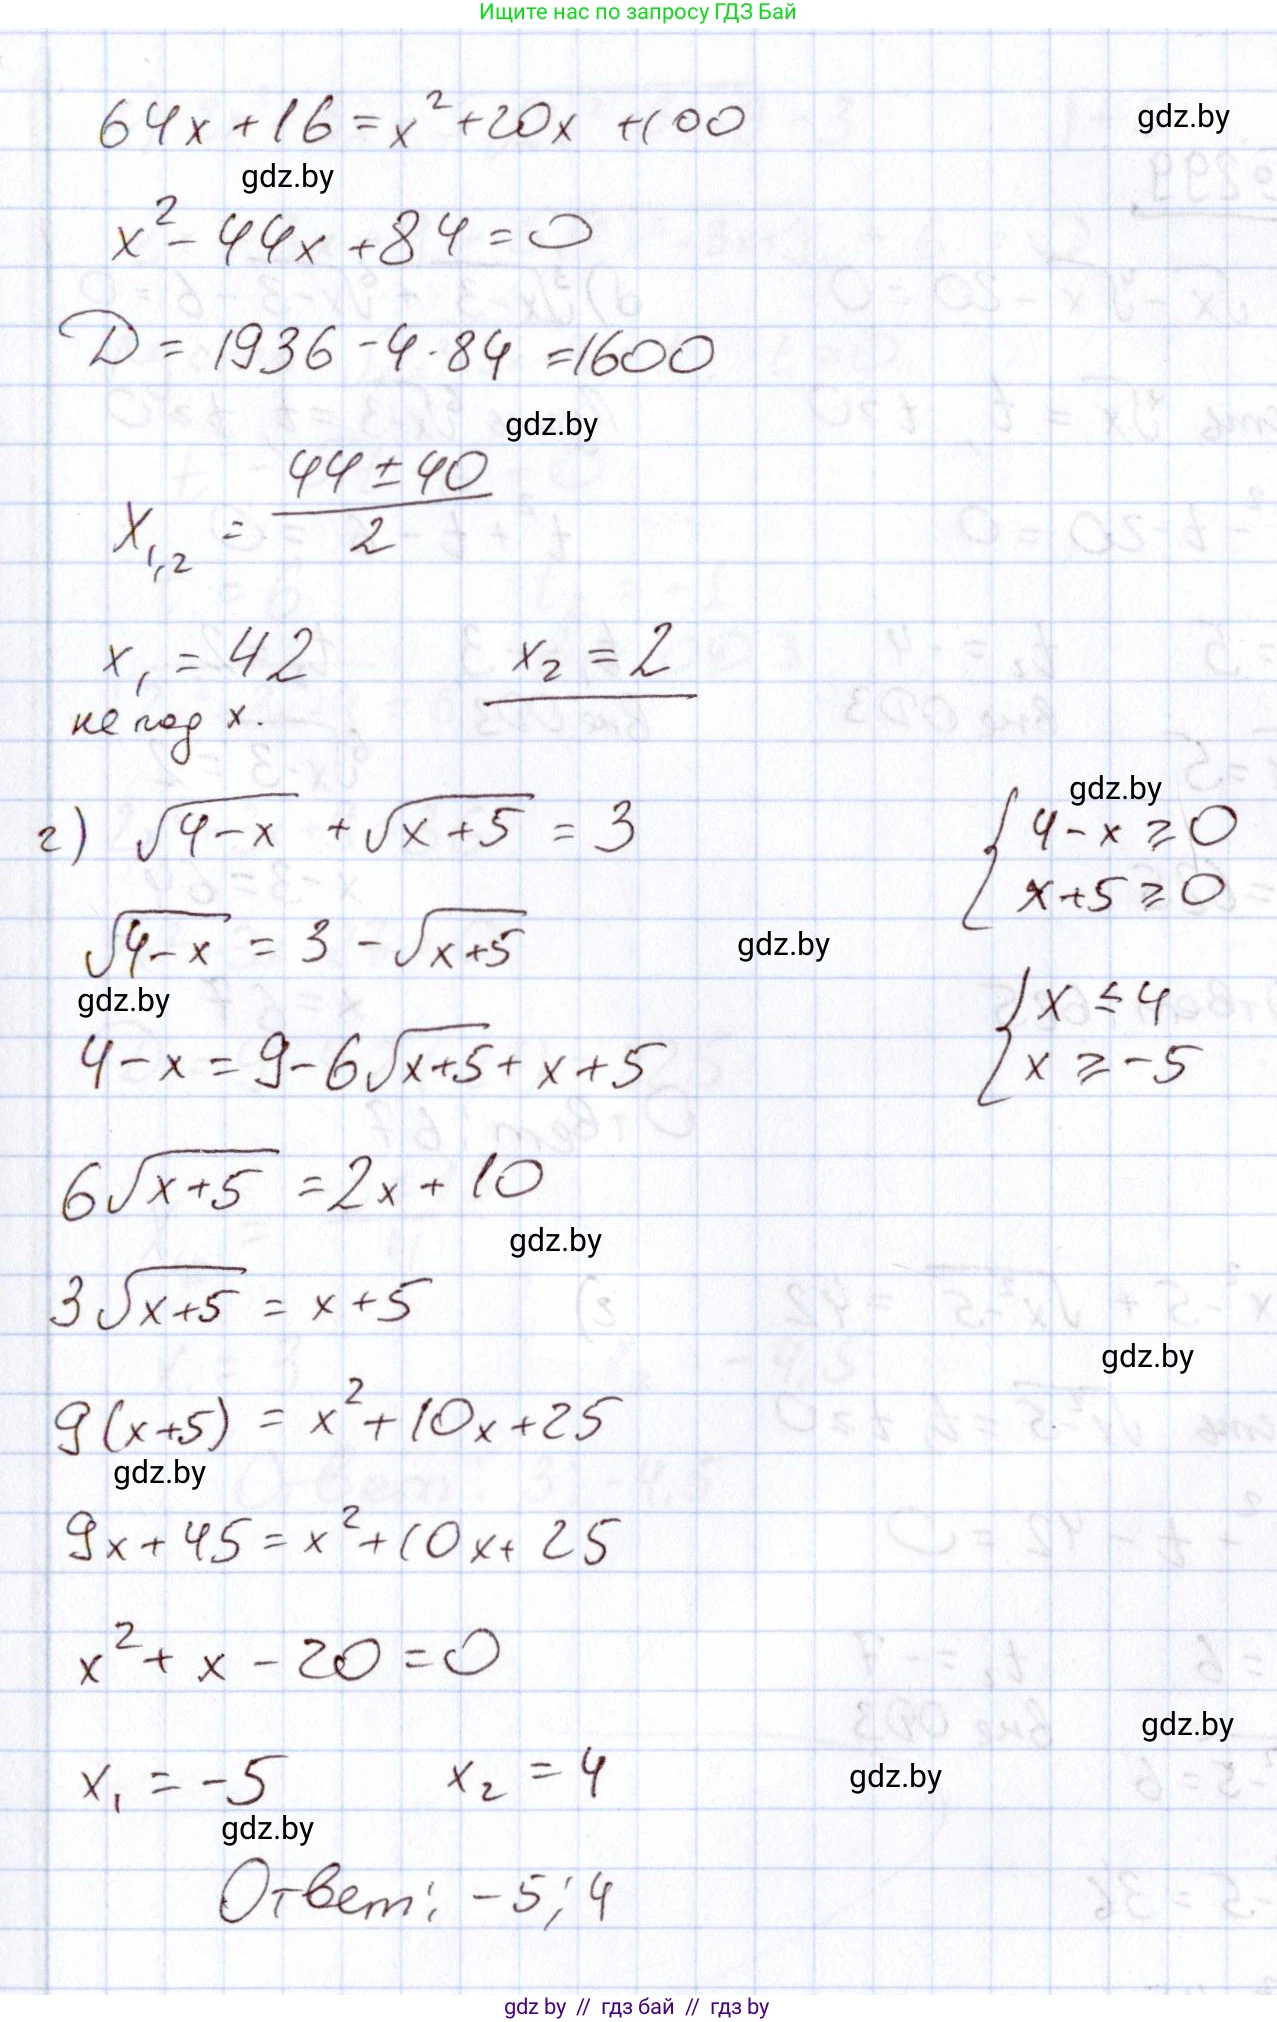 Ищите нас по запросу ГДЗ Бай
64x + 16 = x² + 20x + 100
gdz.by
gdz.by
x² - 44x + 84 = 0
D = 1936 - 4 · 84 = 1600
gdz.by
x₁,₂ = (44 ± 40) / 2
x₁ = 42 x₂ = 2
не подх.
gdz.by
г) √(4-x) + √(x+5) = 3 { 4-x ≥ 0
x+5 ≥ 0
√(4-x) = 3 - √(x+5)
gdz.by
gdz.by
{ x ≤ 4
x ≥ -5
4 - x = 9 - 6√(x+5) + x + 5
6√(x+5) = 2x + 10
gdz.by
3√(x+5) = x + 5
gdz.by
9(x+5) = x² + 10x + 25
gdz.by
9x + 45 = x² + 10x + 25
x² + x - 20 = 0
gdz.by
x₁ = -5 x₂ = 4
gdz.by
gdz.by
Ответ: -5; 4
gdz.by // гдз бай // гдз by